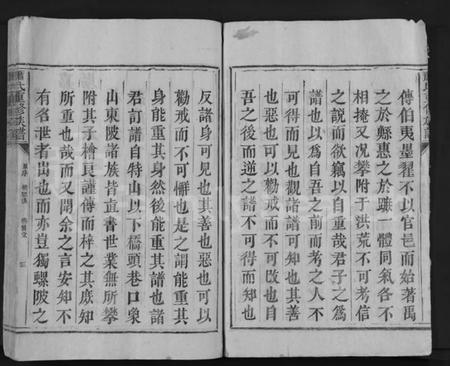 傳伯夷墨翟不以官邑而始著禹
之於縣惠之於賺一體同氣各不
相掩又况攀附于洪荒不可考信
之說而欲竊以自重哉君子之爲
譜也以爲自吾之前而考之人不
可得而見也觀諸譜可知也其善
也惡也可以勸戒而不可改也自
吾之後而逆之譜不可得而知也
反諸身可見也其善也惡也可以
勸戒而不可懈也是之謂能重其
身能重其身然後能重其譜也諸
君訂譜自特山以下橋頭巷口奧
山東陂諸族皆直書世業無所攀
附其子檜良謹傳而梓之其庶知
所重也哉而又聞余之言安知不
有名世者出也而亦豈獨螺陂之
氏重修族譜